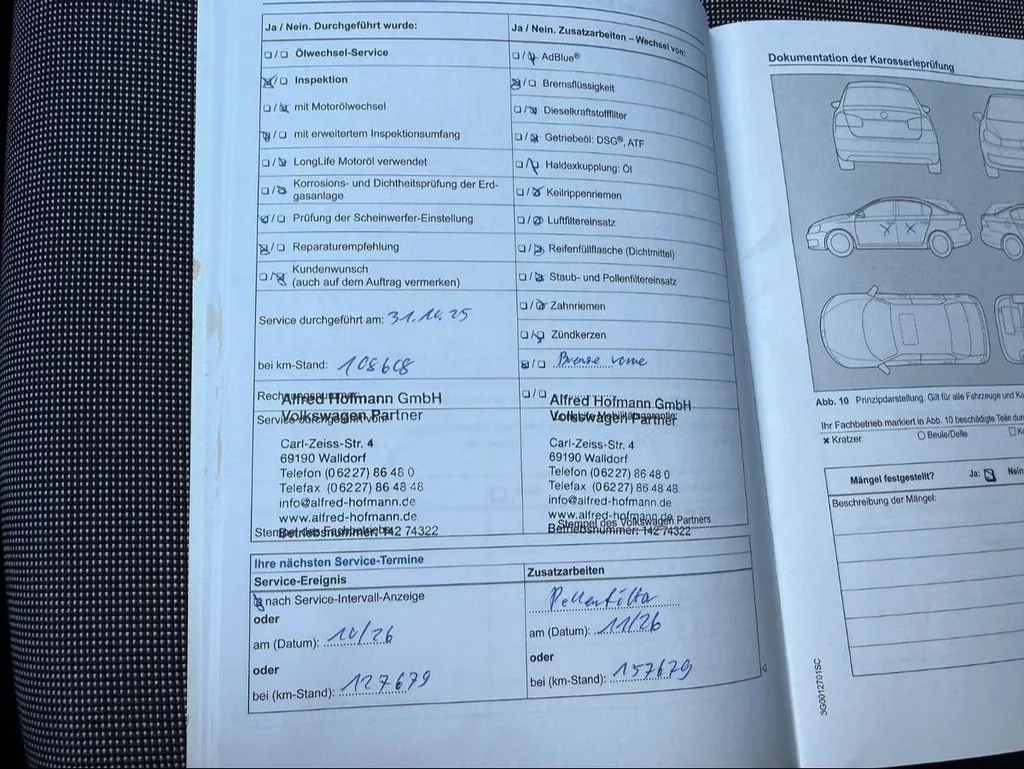 Ja / Nein. Durchgeführt wurde:
□/□ Ölwechsel-Service
☒/□ Inspektion
□/☒ mit Motorölwechsel
☒/□ mit erweitertem Inspektionsumfang
□/☒ LongLife Motoröl verwendet
□/☒ Korrosions- und Dichtheitsprüfung der Erd-
gasanlage
☒/□ Prüfung der Scheinwerfer-Einstellung
☒/□ Reparaturempfehlung
□/☒ Kundenwunsch
(auch auf dem Auftrag vermerken)
Service durchgeführt am: 31.10.25
bei km-Stand: 108608
Alfred Hofmann GmbH
Volkswagen Partner
Carl-Zeiss-Str. 4
69190 Walldorf
Telefon (06227) 86 48 0
Telefax (06227) 86 48 48
info@alfred-hofmann.de
www.alfred-hofmann.de
Betriebsnummer: 142 74322
Ja / Nein. Zusatzarbeiten – Wechsel von:
□/☒ AdBlue®
☒/□ Bremsflüssigkeit
□/☒ Dieselkraftstofffilter
□/☒ Getriebeöl: DSG®, ATF
□/☒ Haldexkupplung: Öl
□/☒ Keilrippenriemen
□/☒ Luftfiltereinsatz
□/☒ Reifenfüllflasche (Dichtmittel)
□/☒ Staub- und Pollenfiltereinsatz
□/☒ Zahnriemen
□/☒ Zündkerzen
☒/□ Bremse vorne
□/□
Alfred Hofmann GmbH
Volkswagen Partner
Carl-Zeiss-Str. 4
69190 Walldorf
Telefon (06227) 86 48 0
Telefax (06227) 86 48 48
info@alfred-hofmann.de
www.alfred-hofmann.de
Stempel des Volkswagen Partners
Betriebsnummer: 142 74322
Ihre nächsten Service-Termine
Service-Ereignis
☒ nach Service-Intervall-Anzeige
oder
am (Datum): 10/26
oder
bei (km-Stand): 127679
Zusatzarbeiten
Pollenfilter
am (Datum): 11/26
oder
bei (km-Stand): 157679
Dokumentation der Karosserieprüfung
Abb. 10 Prinzipdarstellung. Gilt für alle Fahrzeuge und
Ihr Fachbetrieb markiert in Abb. 10 beschädigte Teile
× Kratzer
○ Beule/Delle
Mängel festgestellt? Ja: ☒ Nein
Beschreibung der Mängel:
3G0012701SC